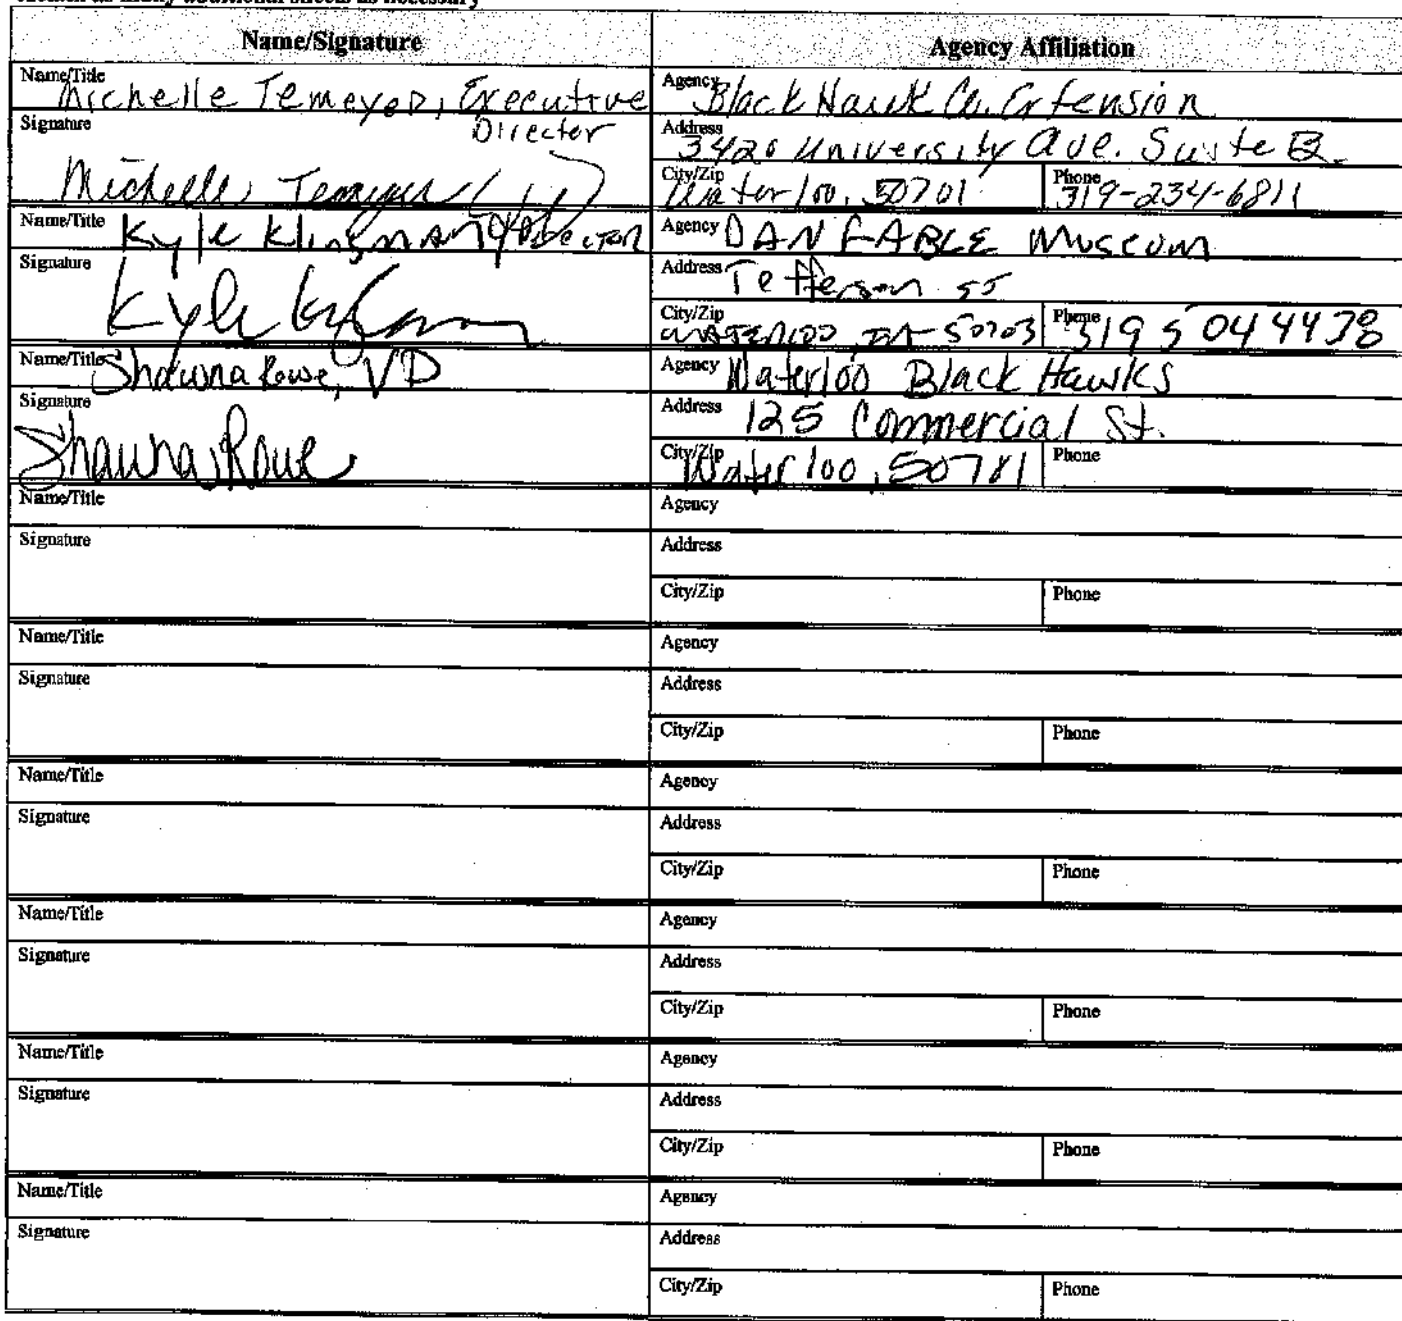 as many additional sheets as necessary
Name/Signature Agency Affiliation
Name/Title Michelle Temeyer, Executive Director
Agency Black Hawk Co. Extension
Signature Michelle Temeyer
Address 3420 University Ave. Suite B.
City/Zip Waterloo, 50701 Phone 319-234-6811
Name/Title Kyle Klingman Director
Agency DAN GABLE Museum
Signature Kyle
Address Jefferson ST
City/Zip WATERLOO, IA 50703 Phone 319 504 4438
Name/Title Shawna Rowe, VP
Agency Waterloo Black Hawks
Signature Shawna Rowe
Address 125 Commercial St.
City/Zip Waterloo, 50701 Phone
Name/Title Agency
Signature Address
City/Zip Phone
Name/Title Agency
Signature Address
City/Zip Phone
Name/Title Agency
Signature Address
City/Zip Phone
Name/Title Agency
Signature Address
City/Zip Phone
Name/Title Agency
Signature Address
City/Zip Phone
Name/Title Agency
Signature Address
City/Zip Phone